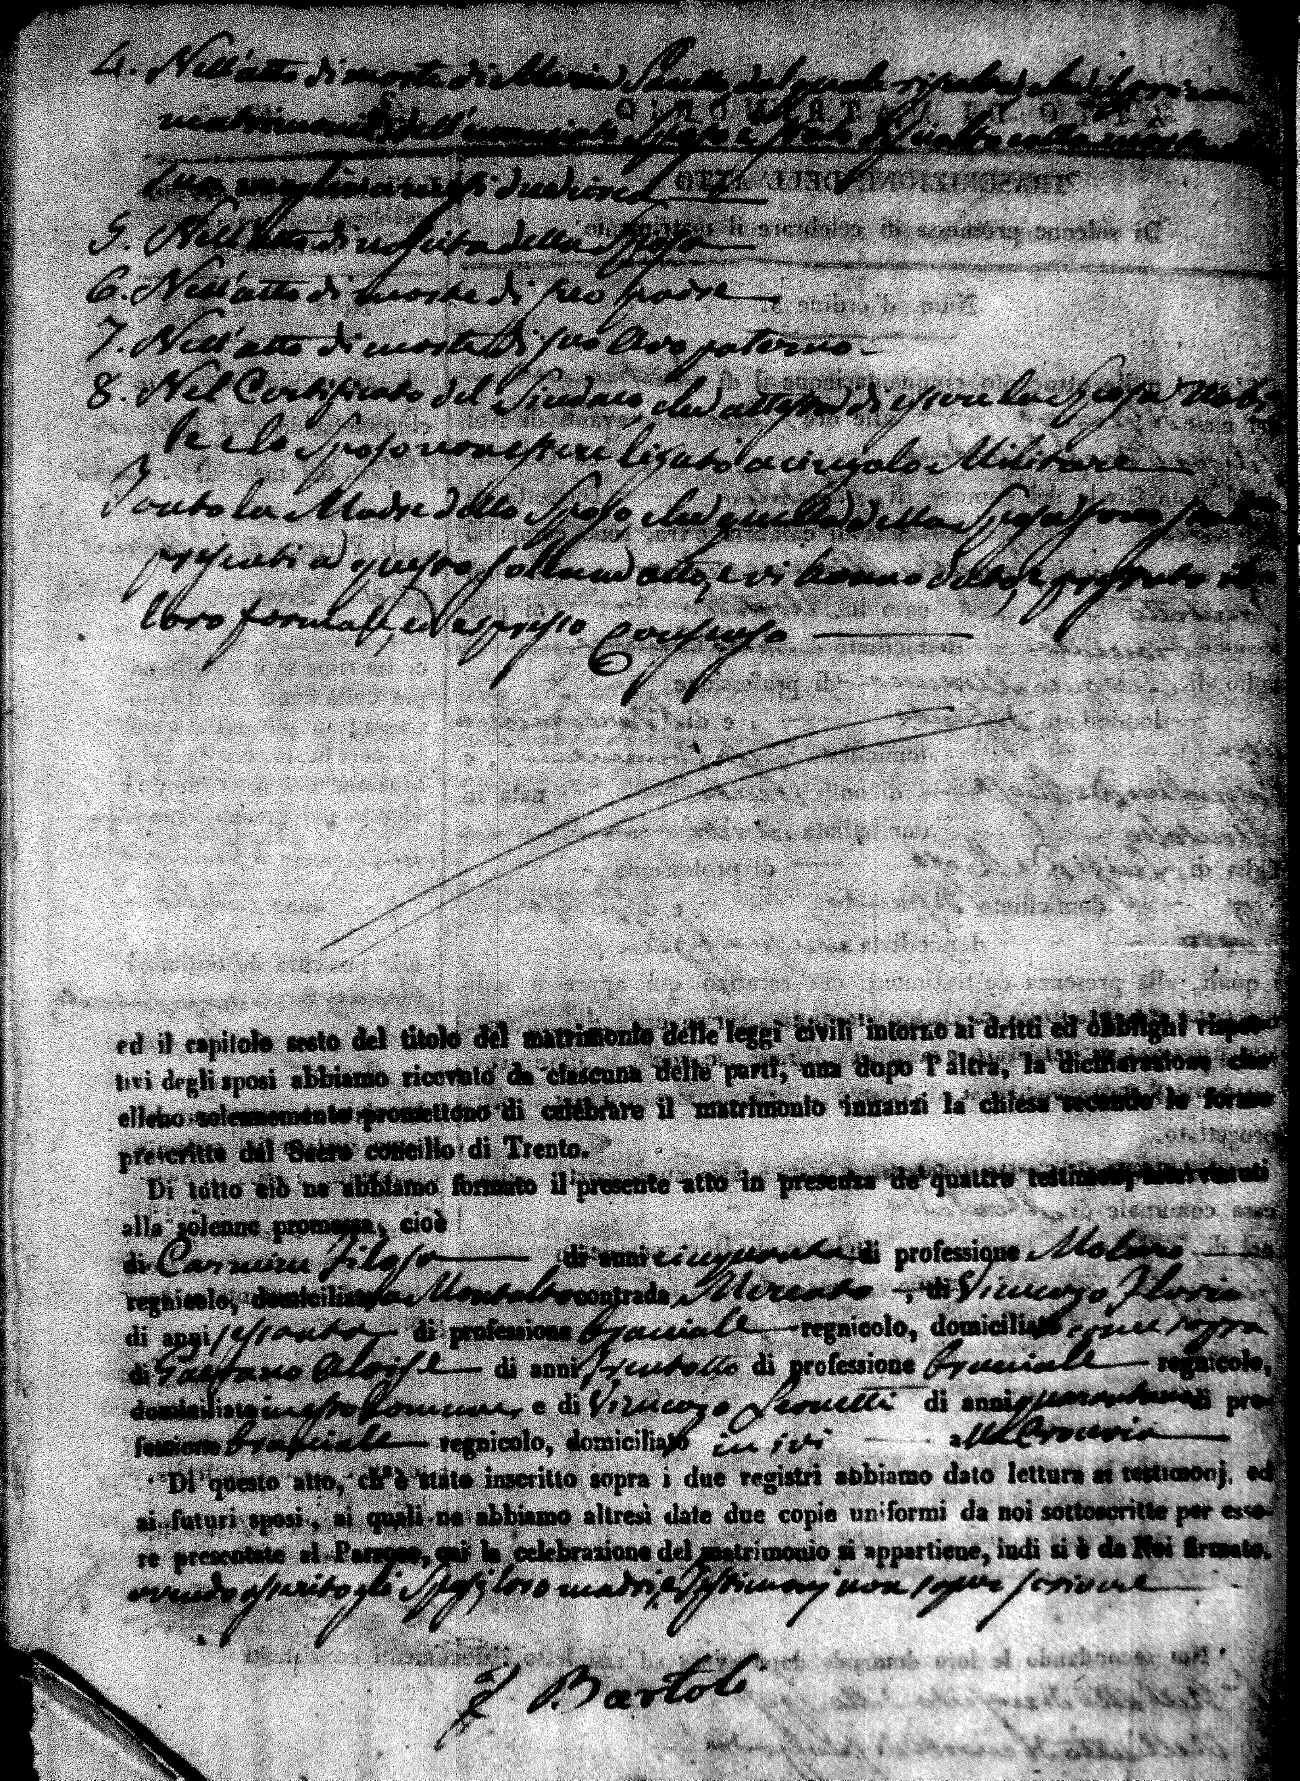 4. Nell'atto di morte di Maria dal quale risulta, che il primo
matrimonio dell'enunciato Sposo è stato sciolto colla morte
5. Nell'atto di nascita della Sposa
6. Nell'atto di morte di suo padre
7. Nell'atto di morte di suo Avo paterno
8. Nel Certificato del Sindaco, che attesta di essere la Sposa Nubi-
le e lo Sposo non essere ligato a cingolo Militare
Tanto la Madre dello Sposo che quella della Sposa sono state
presenti a questo sollenne atto, e vi hanno dato, e prestato il
loro formale, ed espresso Consenso
ed il capitolo sesto del titolo del matrimonio delle leggi civili intorno ai dritti ed obblighi rispet-
tivi degli sposi abbiamo ricevuto da ciascuna delle parti, una dopo l'altra, la dichiarazione che
elleno solennemente promettono di celebrare il matrimonio innanzi la chiesa secondo le forme
prescritte dal Sacro concilio di Trento.
Di tutto ciò ne abbiamo formato il presente atto in presenza de' quattro testimonj intervenuti
alla solenne promessa, cioè
di Carmine Filoso di anni cinquanta di professione Molinaro
regnicolo, domiciliato Montalto contrada Mercato , di Vincenzo Florio
di anni sessanta di professione bracciale regnicolo, domiciliato come sopra
di Gaetano Aloise di anni trentotto di professione bracciale regnicolo,
domiciliato in esto Comune, e di Vincenzo Leonetti di anni quarantuno di pro-
fessione bracciale regnicolo, domiciliato in ivi alla Croceria
Di questo atto, ch'è stato inscritto sopra i due registri abbiamo dato lettura ai testimonj, ed
ai futuri sposi, ai quali ne abbiamo altresì date due copie uniformi da noi sottoscritte per esse-
re presentate al Parroco, cui la celebrazione del matrimonio si appartiene, indi si è da Noi firmato.
avendo asserito gli Sposi, loro madri, e Testimonj non saper scrivere
Bartoli